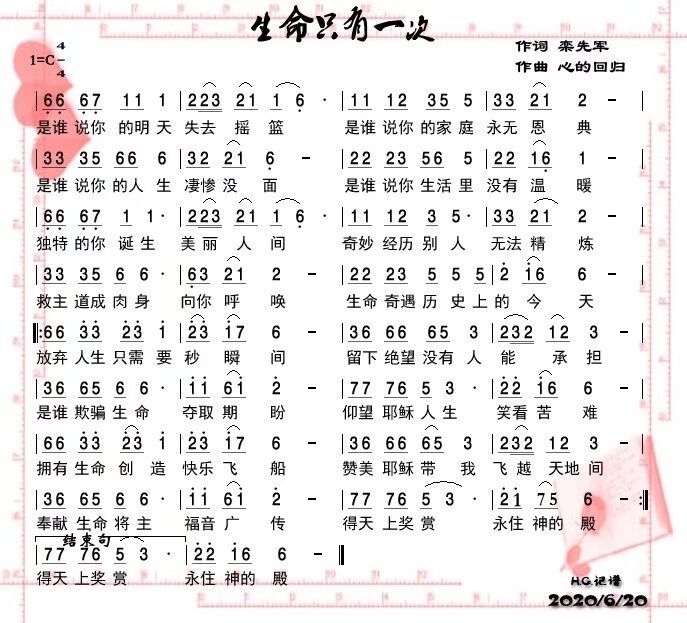 生命只有一次
作词 栾先军
1=C 4/4
作曲 心的回归
66 67 11 1 | 223 21 1 6 · | 11 12 35 5 | 33 21 2 – |
是谁说你的明天失去摇篮 是谁说你的家庭永无恩典
33 35 66 6 | 32 21 6 – | 22 23 56 5 | 22 16 1 – |
是谁说你的人生凄惨没面 是谁说你生活里没有温暖
66 67 1 1· | 223 21 1 6 · | 11 12 3 5· | 33 21 2 – |
独特的你诞生美丽人间 奇妙经历别人无法精炼
33 35 6 6 · | 63 21 2 – | 22 23 5 5 5 | 2 16 6 – |
救主道成肉身向你呼唤 生命奇遇历史上的今天
‖: 66 33 23 1· | 23 17 6 – | 36 66 65 3 | 232 12 3 – |
放弃人生只需要秒瞬间 留下绝望没有人能承担
36 65 6 6 · | 11 61 2 – | 77 76 5 3 · | 22 16 6 – |
是谁欺骗生命夺取期盼 仰望耶稣人生笑看苦难
66 33 23 1· | 23 17 6 – | 36 66 65 3 | 232 12 3 – |
拥有生命创造快乐飞船 赞美耶稣带我飞越天地间
36 65 6 6 · | 11 61 2 – | 77 76 5 3 · | 21 75 6 – :‖
奉献生命将主福音广传 得天上奖赏永住神的殿
结束句
77 76 5 3 · | 22 16 6 – ‖
得天上奖赏永住神的殿
H.G.记谱
2020/6/20